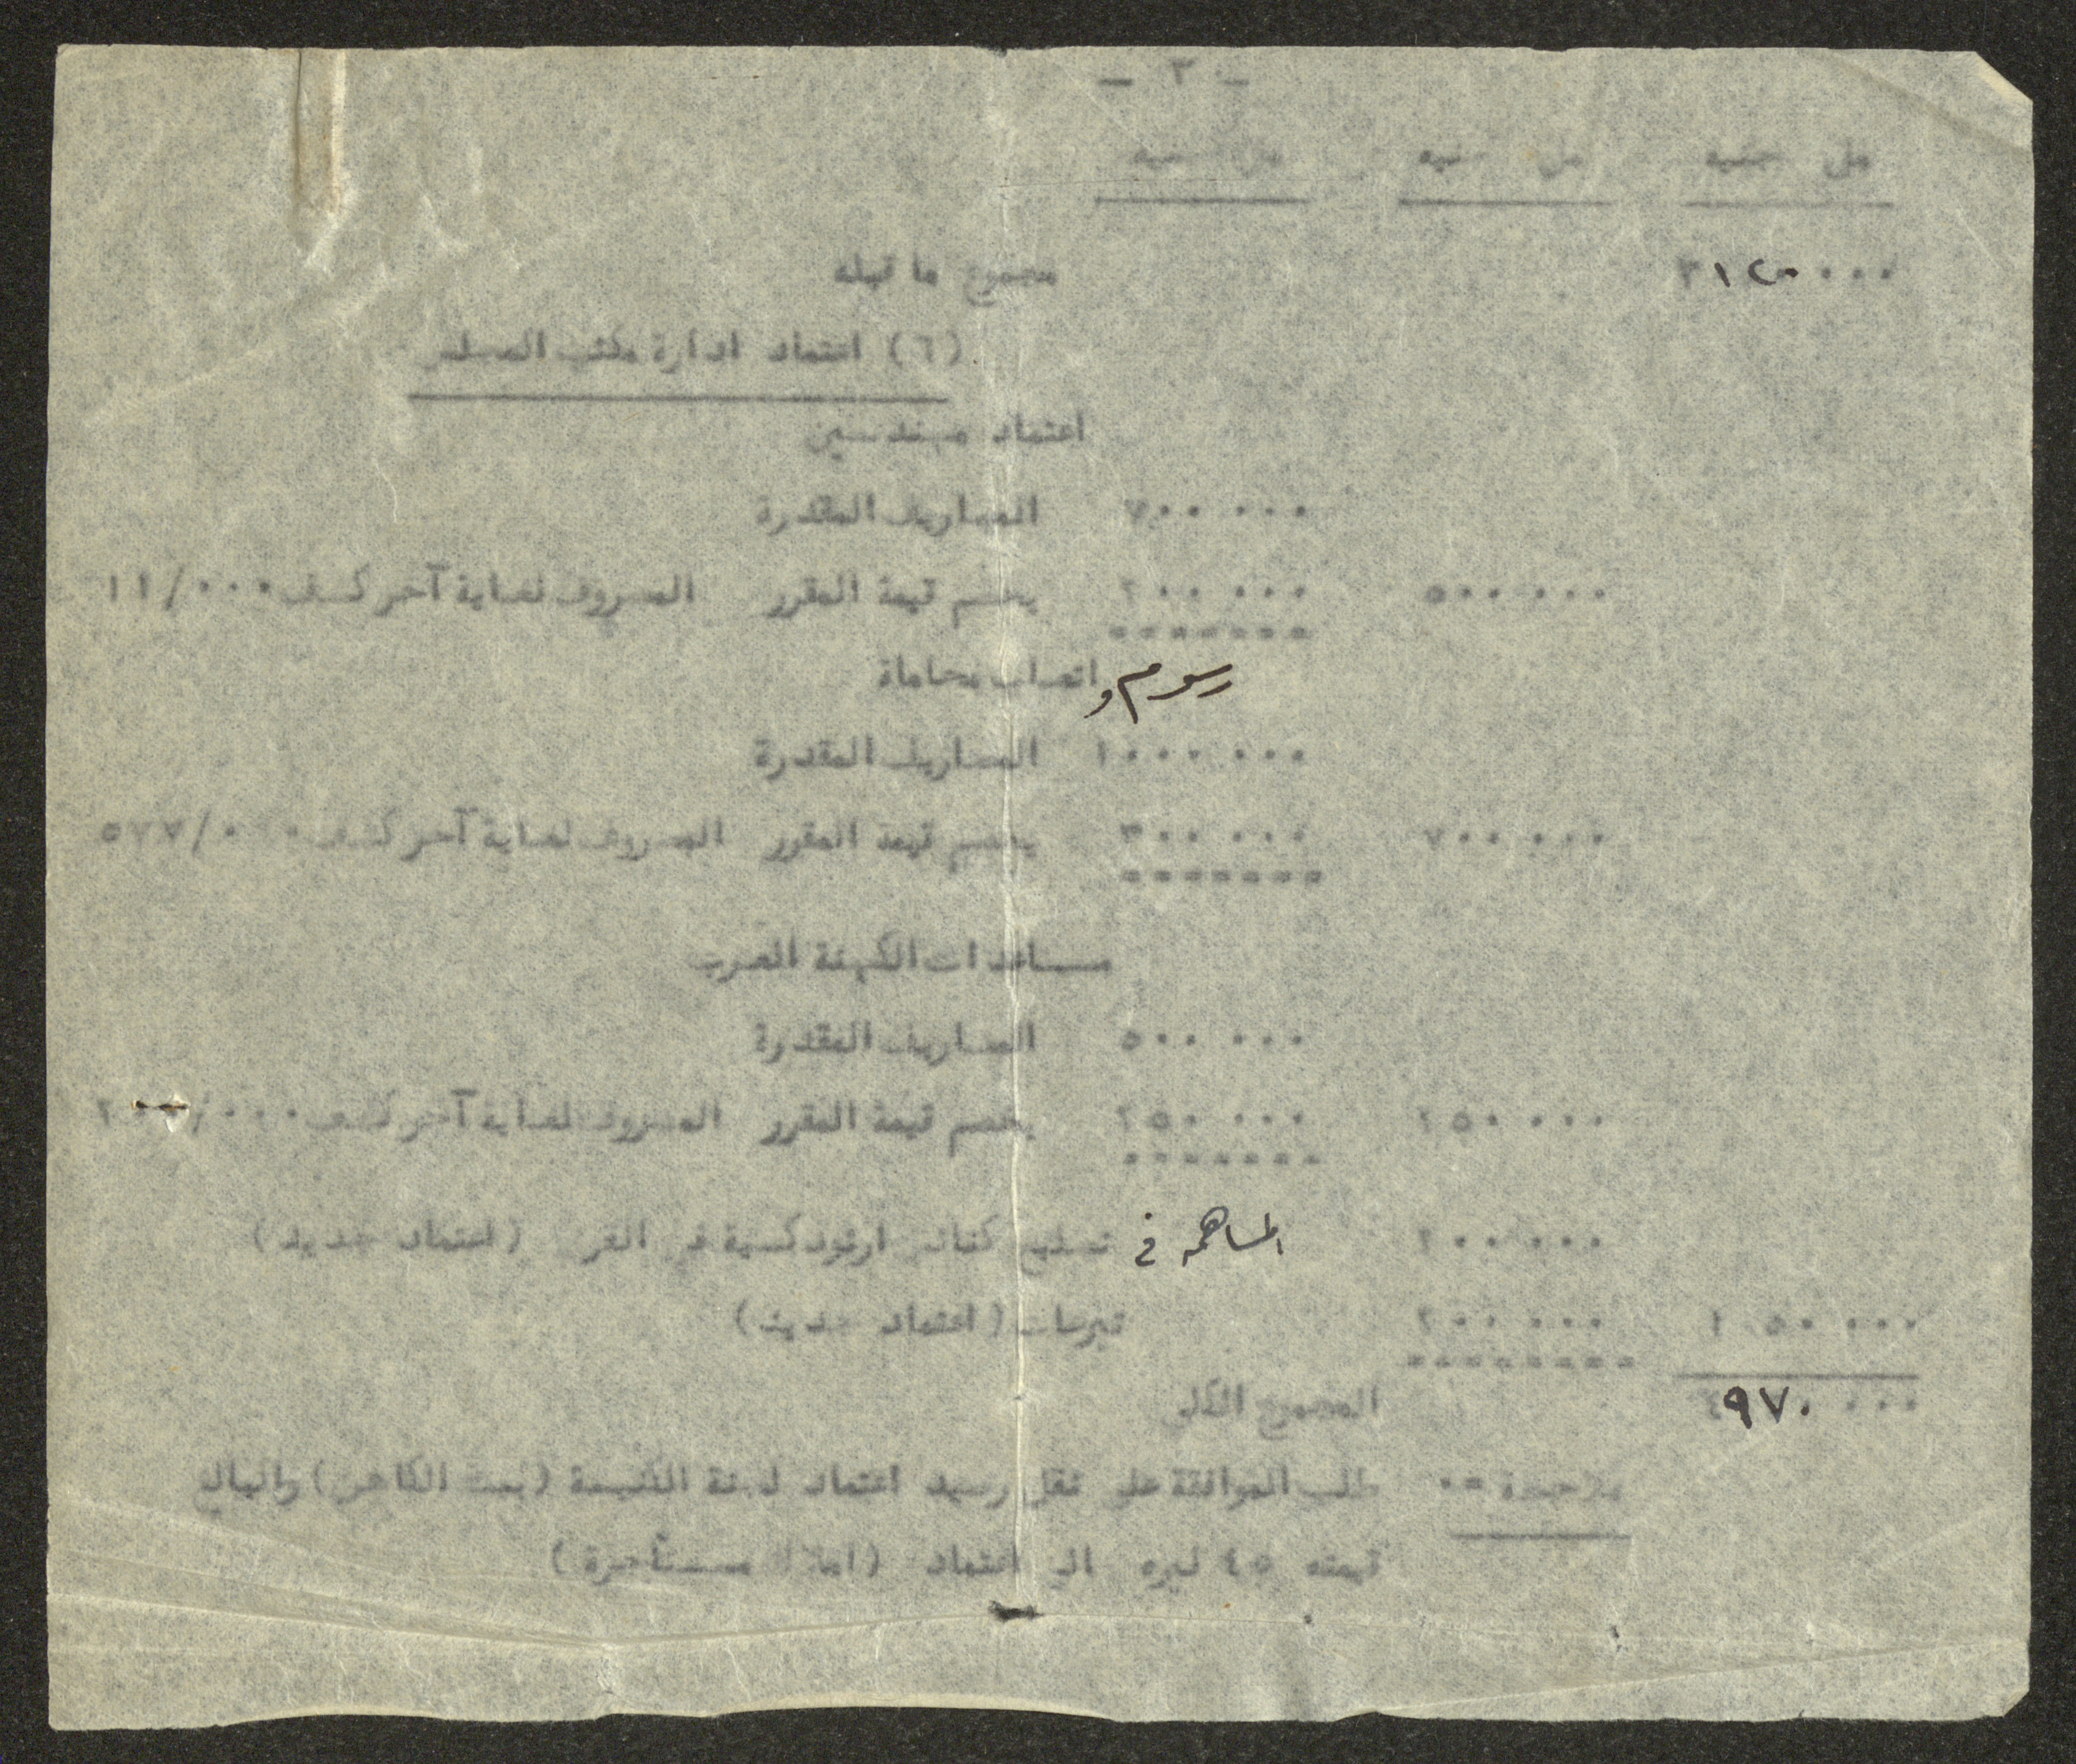 - ٣ -
مل جنيه مل جنيه مل جنيه
٣١٢٠ ٠٠٠ مجموع ما قبله
(٦) اعتماد ادارة مكتب المجلس
اعتماد مهندسين
٧٠٠ ٠٠٠ المصاريف المقدرة
٥٠٠ ٠٠٠ ٢٠٠ ٠٠٠ يخصم قيمة المقرر المصروف لغاية آخر كشف ١١/٠٠٠
رسوم و اتعاب محاماة
١٠٠٠ ٠٠٠ المصاريف المقدرة
٧٠٠ ٠٠٠ ٣٠٠ ٠٠٠ يخصم قيمة المقرر المصروف لغاية آخر كشف
مساعدات الكهنة العرب
٥٠٠ ٠٠٠ المصاريف المقدرة
٢٥٠ ٠٠٠ ٢٥٠ ٠٠٠ يخصم قيمة المقرر المصروف لغاية آخر كشف
٢٠٠ ٠٠٠ المساهمه في تصليح كنائس ارثوذكسية في القرى (اعتماد جديد)
١٨٥٠ ٠٠٠ ٢٠٠ ٠٠٠ تبرعات (اعتماد جديد)
٤٩٧٠ ٠٠٠ المجموع الكلي
ملاحظة =٠ طلب الموافقة على نقل رصيد اعتماد لجنة الكنيسة (بمت الكاهن) والبالغ
قيمته ٤٥ ليره الى اعتماد (املاك مستأجرة)